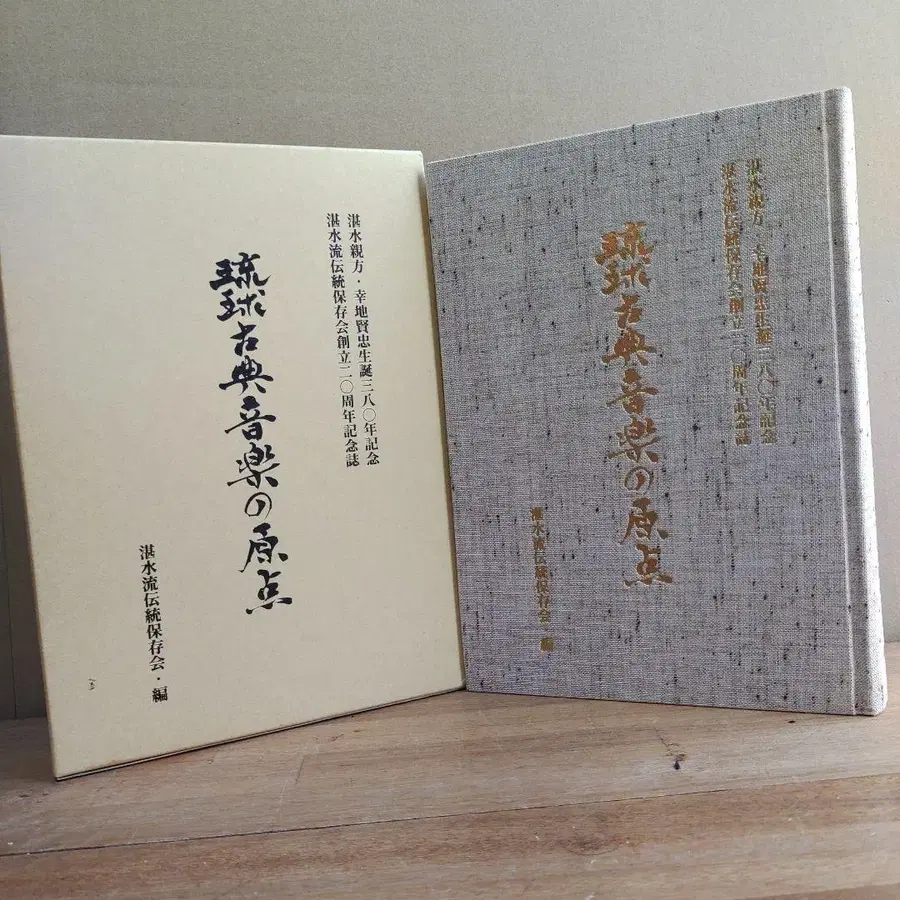 湛水親方・幸地賢忠生誕三八〇年記念
湛水流伝統保存会創立二〇周年記念誌
琉球古典音楽の原点
湛水流伝統保存会・編
湛水親方・幸地賢忠生誕三八〇年記念
湛水流伝統保存会創立二〇周年記念誌
琉球古典音楽の原点
湛水流伝統保存会・編